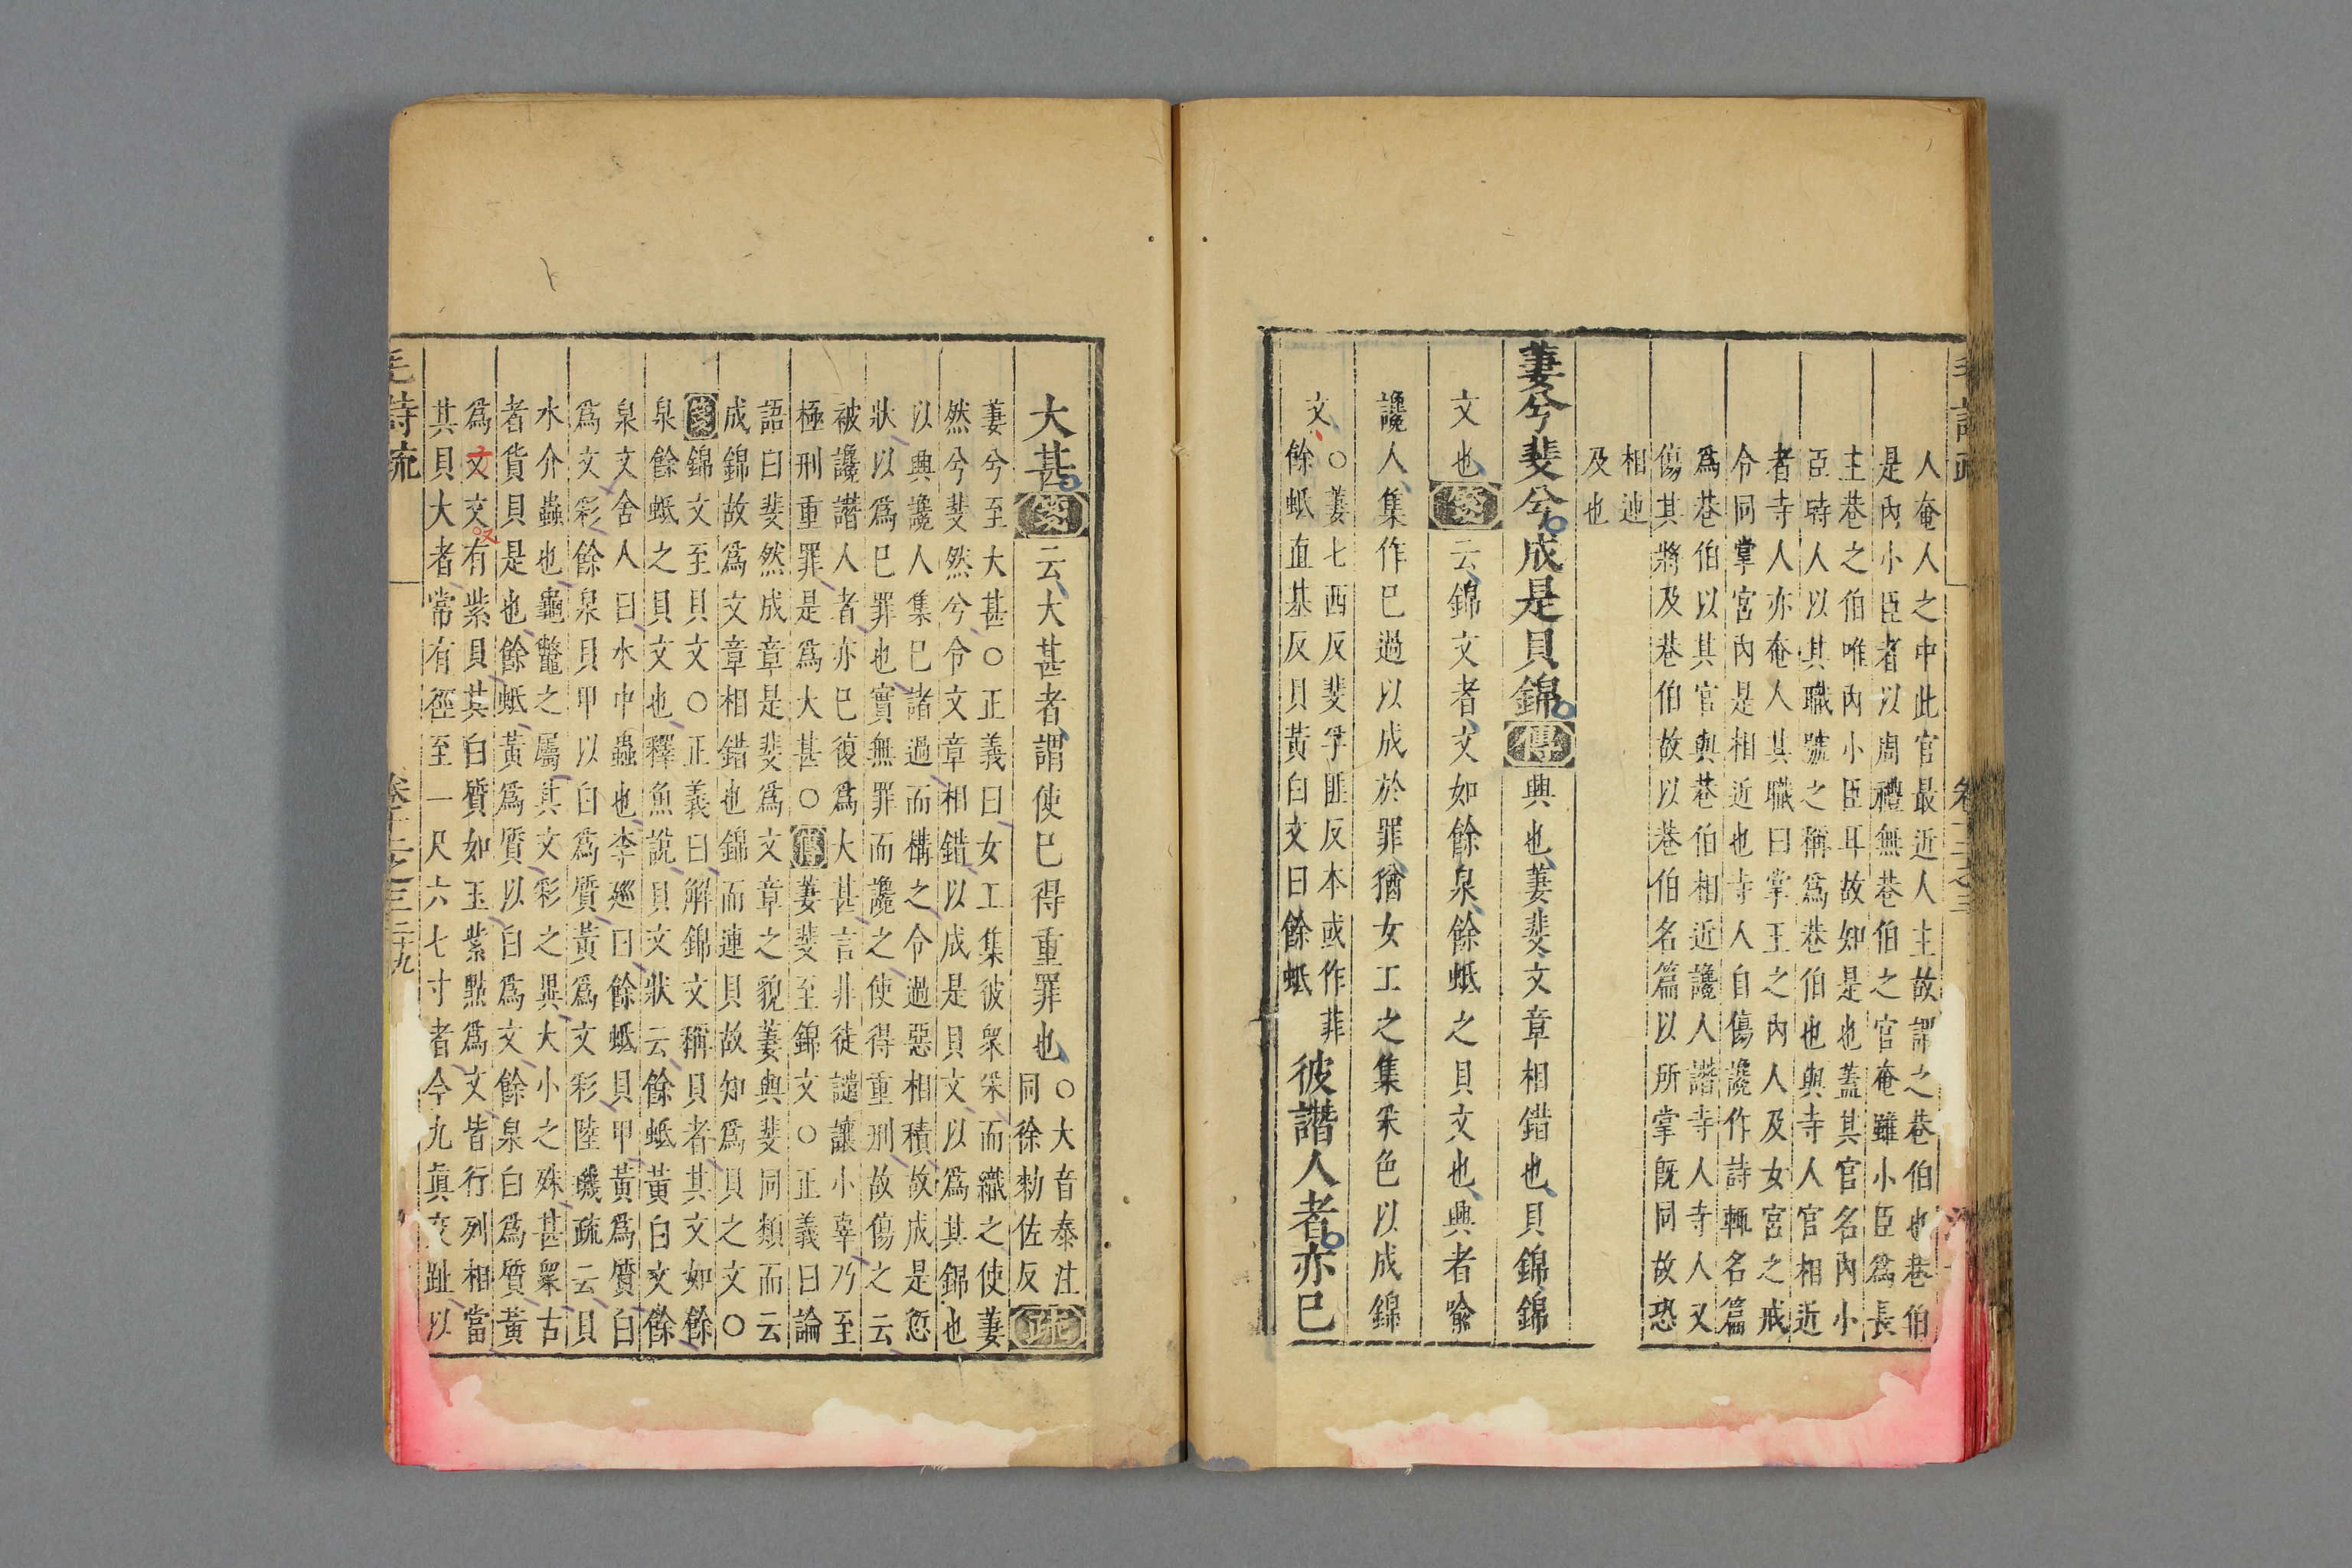 人奄人之中此官最近人主故謂之巷伯也巷伯
是內小臣者以周禮無巷伯之官奄雖小臣爲長
主巷之伯唯內小臣耳故知是也蓋其官名內小
臣時人以其職號之稱爲巷伯也與寺人官相近
者寺人亦奄人其職曰掌王之內人及女宮之戒
令同掌宮內是相近也寺人自傷讒作詩輒名篇
爲巷伯以其官與巷伯相近讒人譖寺人寺人又
傷其將及巷伯故以巷伯名篇以所掌旣同故恐
相連
及也
萋兮斐兮成是貝錦傳興也萋斐文章相錯也貝錦錦
文也箋云錦文者文如餘泉餘蚳之貝文也興者喻
讒人集作巳過以成於罪猶女工之集采色以成錦
文○萋七西反斐孚匪反本或作菲
餘蚳直基反貝黃白文曰餘蚳
彼譖人者亦巳
大甚箋云大甚者謂使巳得重罪也○大音泰注
同徐勑佐反疏
萋兮至大甚○正義曰女工集彼衆采而織之使萋
然兮斐然兮令文章相錯以成是貝文以爲其錦也
以興讒人集巳諸過而構之令過惡相積故成是愆
狀以爲巳罪也實無罪而讒之使得重刑故傷之云
被讒譖人者亦巳復爲大甚言非徒譴讓小辜乃至
極刑重罪是爲大甚○傳萋斐至錦文○正義曰論
語曰斐然成章是斐爲文章之貌萋與斐同類而云
成錦故爲文章相錯也錦而連貝故知爲貝之文○
箋錦文至貝文○正義曰解錦文稱貝者其文如餘
泉餘蚳之貝文也釋魚說貝文狀云餘蚳黃白文餘
泉文舍人曰水中蟲也李廵曰餘蚳貝甲黃爲質白
爲文彩餘泉貝甲以白爲質黃爲文彩陸璣疏云貝
水介蟲也龜鼈之屬其文彩之異大小之殊甚衆古
者貨貝是也餘蚳黃爲質以白爲文餘泉白爲質黃
爲文文有紫貝其白質如玉紫點爲文皆行列相當
其貝大者常有徑至一尺六七寸者今九真交趾以
毛詩疏　卷十二之三　十九